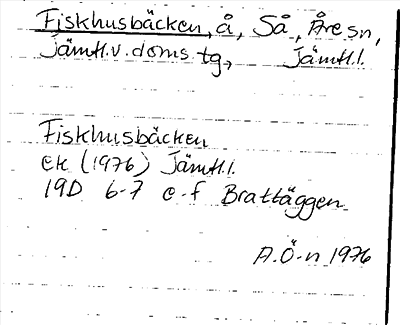 Fiskhusbäcken, å, Så, Åre sn,
Jämtl.v.doms.tg, Jämtl.l.
Fiskhusbäcken
ek (1976) Jämtl.l.
19D 6-7 e-f Brattäggen
A.Ö-n 1976